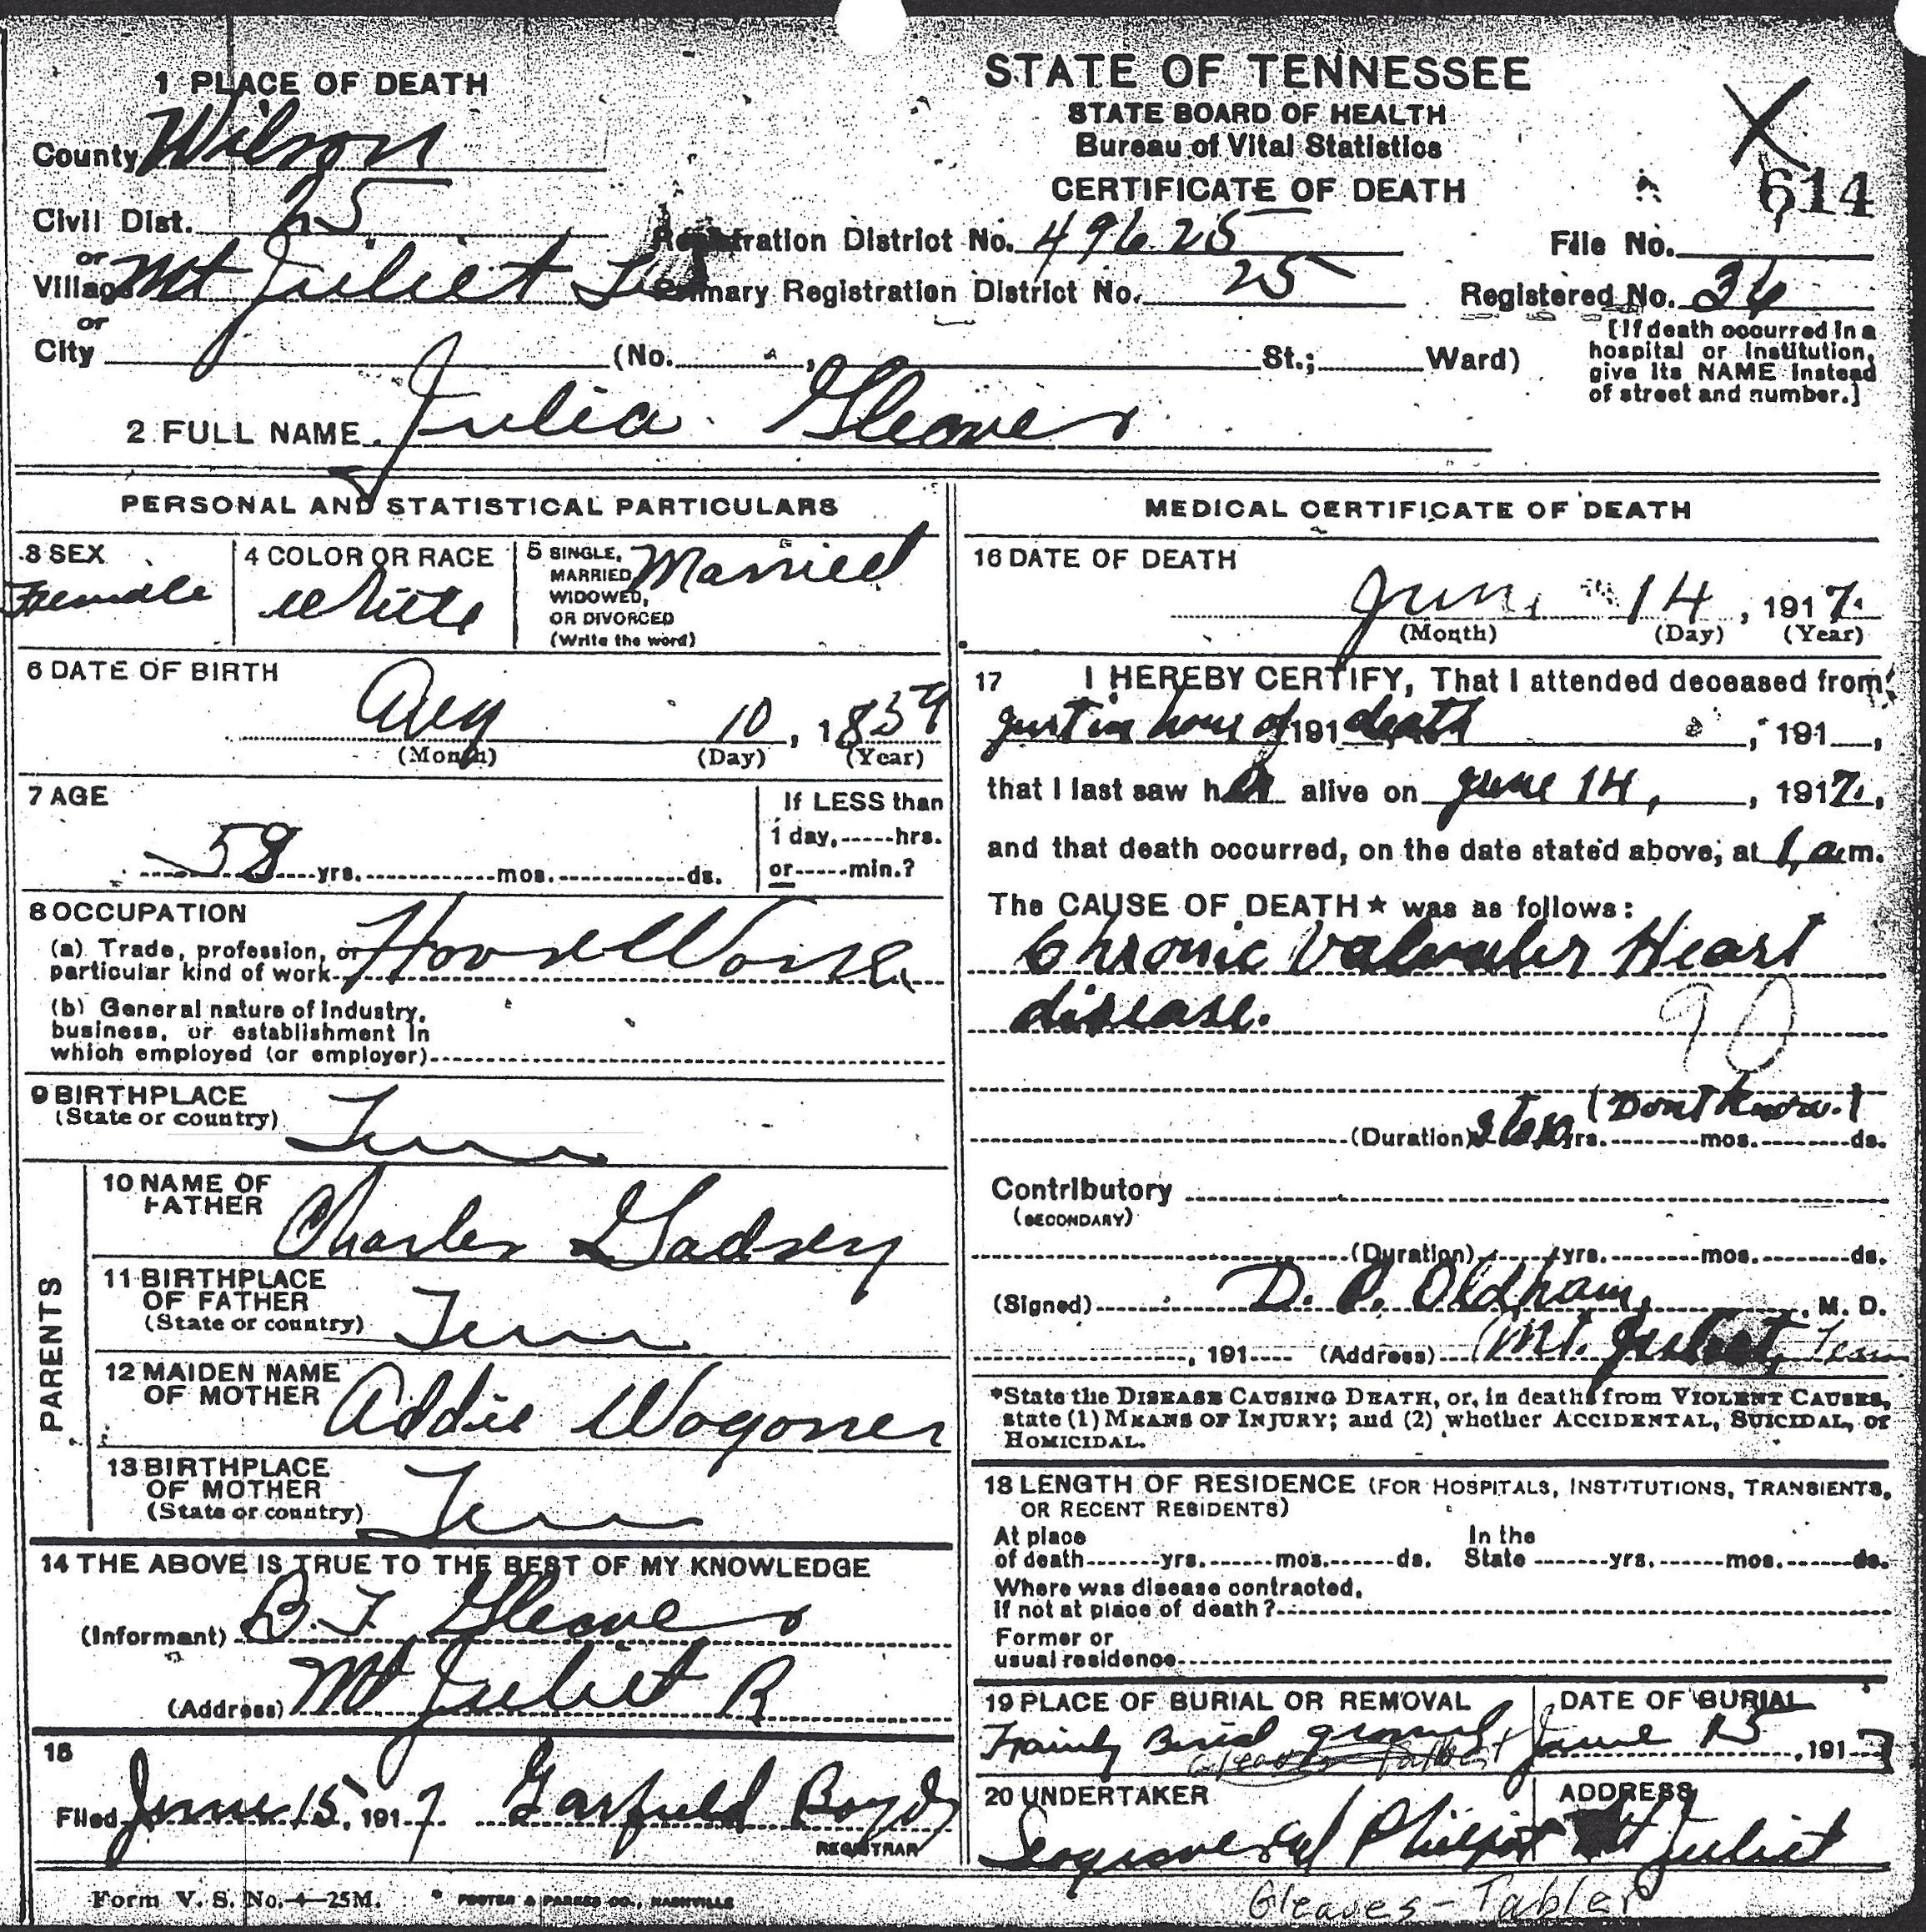 1 PLACE OF DEATH
County Wilson
Civil Dist. 25
or
Village Mt Juliet
or
City (No. , St.; Ward)
STATE OF TENNESSEE
STATE BOARD OF HEALTH
Bureau of Vital Statistics
CERTIFICATE OF DEATH
X
614
Registration District No. 49625
File No.
Primary Registration District No. 25
Registered No. 36
[If death occurred in a
hospital or institution,
give its NAME instead
of street and number.]
2 FULL NAME Julia Gleaves
PERSONAL AND STATISTICAL PARTICULARS
3 SEX
Female
4 COLOR OR RACE
White
5 SINGLE,
MARRIED,
WIDOWED,
OR DIVORCED
(Write the word)
Married
6 DATE OF BIRTH
Aug 10, 1859
(Month) (Day) (Year)
7 AGE
58 yrs. mos. ds.
If LESS than
1 day, hrs.
or min.?
8 OCCUPATION
(a) Trade, profession, or
particular kind of work House Work
(b) General nature of industry,
business, or establishment in
which employed (or employer)
9 BIRTHPLACE
(State or country)
Tenn
PARENTS
10 NAME OF
FATHER
Charles Gadsey
11 BIRTHPLACE
OF FATHER
(State or country)
Tenn
12 MAIDEN NAME
OF MOTHER
Addie Wogoner
13 BIRTHPLACE
OF MOTHER
(State or country)
Tenn
14 THE ABOVE IS TRUE TO THE BEST OF MY KNOWLEDGE
(Informant) B. F. Gleaves
(Address) Mt Juliet R
15
Filed June 15, 1917 Garfield Boyd
REGISTRAR
MEDICAL CERTIFICATE OF DEATH
16 DATE OF DEATH
June 14, 1917.
(Month) (Day) (Year)
17 I HEREBY CERTIFY, That I attended deceased from
just in hour of 191 death , 191 ,
that I last saw her alive on June 14, , 1917.,
and that death occurred, on the date stated above, at 1, a.m.
The CAUSE OF DEATH* was as follows:
Chronic Valvular Heart
disease.
90
(Dont Know.)
(Duration) yrs. mos. ds.
Contributory
(SECONDARY)
(Duration) yrs. mos. ds.
(Signed) D. P. Oldham, M. D.
, 191 (Address) Mt. Juliet, Tenn
*State the DISEASE CAUSING DEATH, or, in deaths from VIOLENT CAUSES,
state (1) MEANS OF INJURY; and (2) whether ACCIDENTAL, SUICIDAL, or
HOMICIDAL.
18 LENGTH OF RESIDENCE (FOR HOSPITALS, INSTITUTIONS, TRANSIENTS,
OR RECENT RESIDENTS)
At place
of death yrs. mos. ds.
In the
State yrs. mos. ds.
Where was disease contracted,
if not at place of death?
Former or
usual residence
19 PLACE OF BURIAL OR REMOVAL
Family Burial ground
DATE OF BURIAL
June 15, 1917
20 UNDERTAKER
ADDRESS
Mt Juliet
Form V. S. No. 4—25M.
FOSTER & PARKES CO., NASHVILLE
Gleaves-Tabler